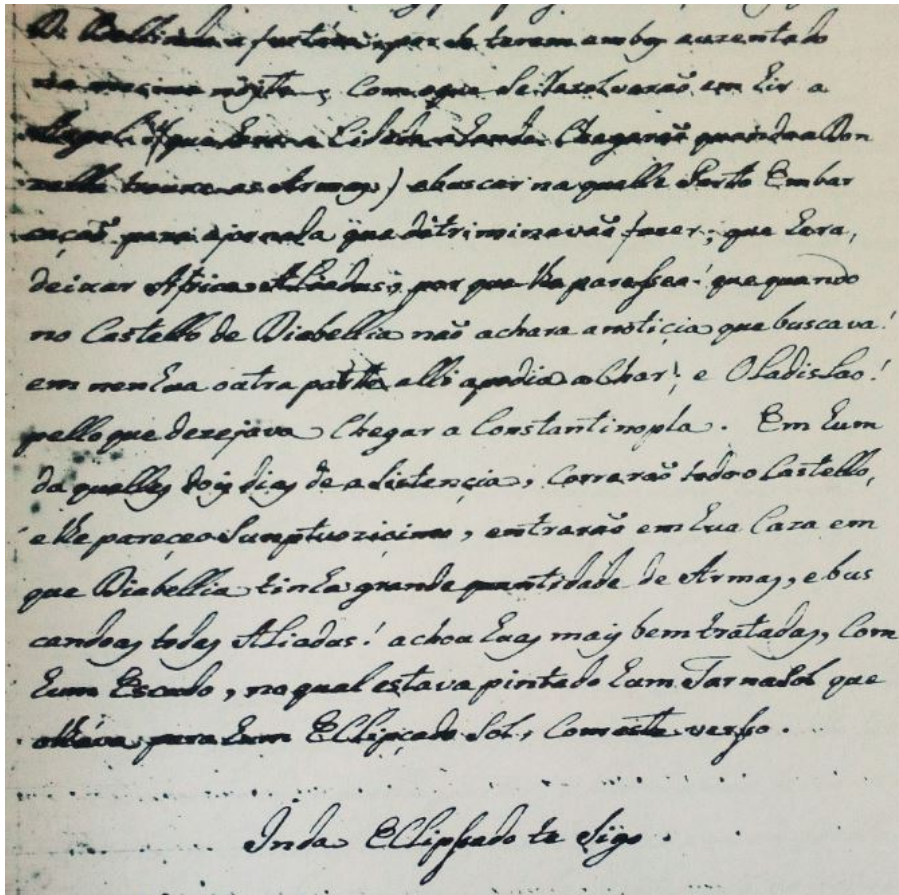 a fortuna, por se terem ambos auzentado
na mesma noite, com que se rezolverão em hir a
que hera a Cidade aonde Chegarão quando a Don
zella trouxe as Armas) e buscar naquelle Porto Embar
cação para a jornada que ditriminavão fazer; que hera,
deixar Africa Aliadus; por que lhe paressea! que quando
no Castello de Diabellia não achara a noticia que buscava!
em nenhua oatra parte alli a podia aChar; e Oladislao!
pello que dezejava Chegar a Constantinopla. Em hum
daquelles dois dias de adistençia, Correrão todo o Castello,
e lhe pareçeo Sumptuozicimo, entrarão em hua Caza em
que Diabellia tinha grande quantidade de Armas, e bus
candoas todas Aliadus! achou huas mais bem tratadas, Com
hum Escudo, no qual estava pintado hum Tarnasol que
olhava para hum EClipçado Sol, Com este verso.
Inda EClipssado te Sigo.